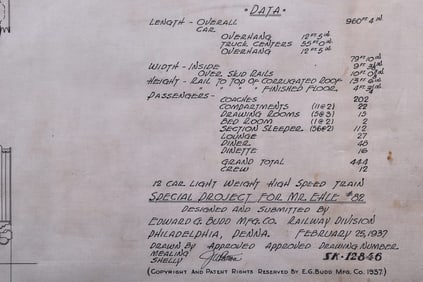 "DATA"
LENGTH - OVERALL 960 FT 4 IN
CAR
OVERHANG 12 FT 5 IN
TRUCK CENTERS 55 FT 0 IN
OVERHANG 12 FT 5 IN
79 FT 10 IN
WIDTH - INSIDE 9 FT
OVER SKID RAILS 10 FT
HEIGHT - RAIL TO TOP OF CORRUGATED ROOF 13 FT 6 IN
" " " " FINISHED FLOOR 4 FT
PASSENGERS -
COACHES 202
COMPARTMENTS (1@2) 22
DRAWING ROOMS (5@3) 15
BED ROOM (1@2) 2
SECTION SLEEPER (56@2) 112
LOUNGE 27
DINER 48
DINETTE 16
GRAND TOTAL 444
CREW 12
12 CAR LIGHT WEIGHT HIGH SPEED TRAIN
SPECIAL PROJECT FOR MR. EHLE #82
DESIGNED AND SUBMITTED BY
EDWARD G. BUDD MFG. CO. RAILWAY DIVISION
PHILADELPHIA, PENNA. FEBRUARY 25, 1937
DRAWN BY APPROVED APPROVED DRAWING NUMBER
MEALING
SHELLY SK-12846
(COPYRIGHT AND PATENT RIGHTS RESERVED BY E.G. BUDD MFG. CO. 1937.)